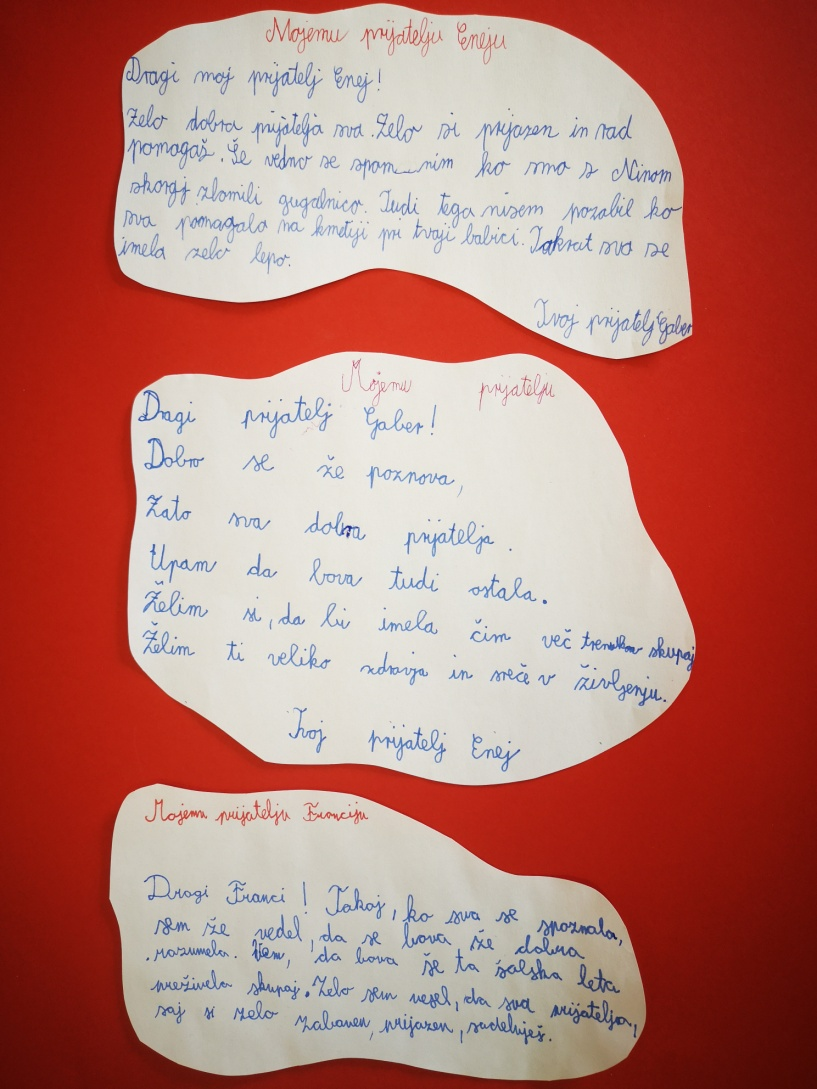 Mojemu prijatelju Eneju
Dragi moj prijatelj Enej!
Zelo dobra prijatelja sva. Zelo si prijazen in rad
pomagaš. Še vedno se spom_nim ko smo z Ninom
skoraj zlomili gugalnico. Tudi tega nisem pozabil ko
sva pomagala na kmetiji pri tvoji babici. Takrat sva se
imela zelo lepo.
Tvoj prijatelj Gaber
Mojemu prijatelju
Dragi prijatelj Gaber!
Dobro se že poznova,
Zato sva dobra prijatelja.
Upam da bova tudi ostala.
Želim si, da bi imela čim več trenutkov skupaj
Želim ti veliko zdravja in sreče v življenju.
Tvoj prijatelj Enej
Mojemu prijatelju Franciju
Dragi Franci! Takoj, ko sva se spoznala,
sem že vedel, da se bova že dobra
razumela. Vem, da bova še ta šolska leta
preživela skupaj. Zelo sem vesel, da sva prijatelja,
saj si zelo zabaven, prijazen, sodeluješ.